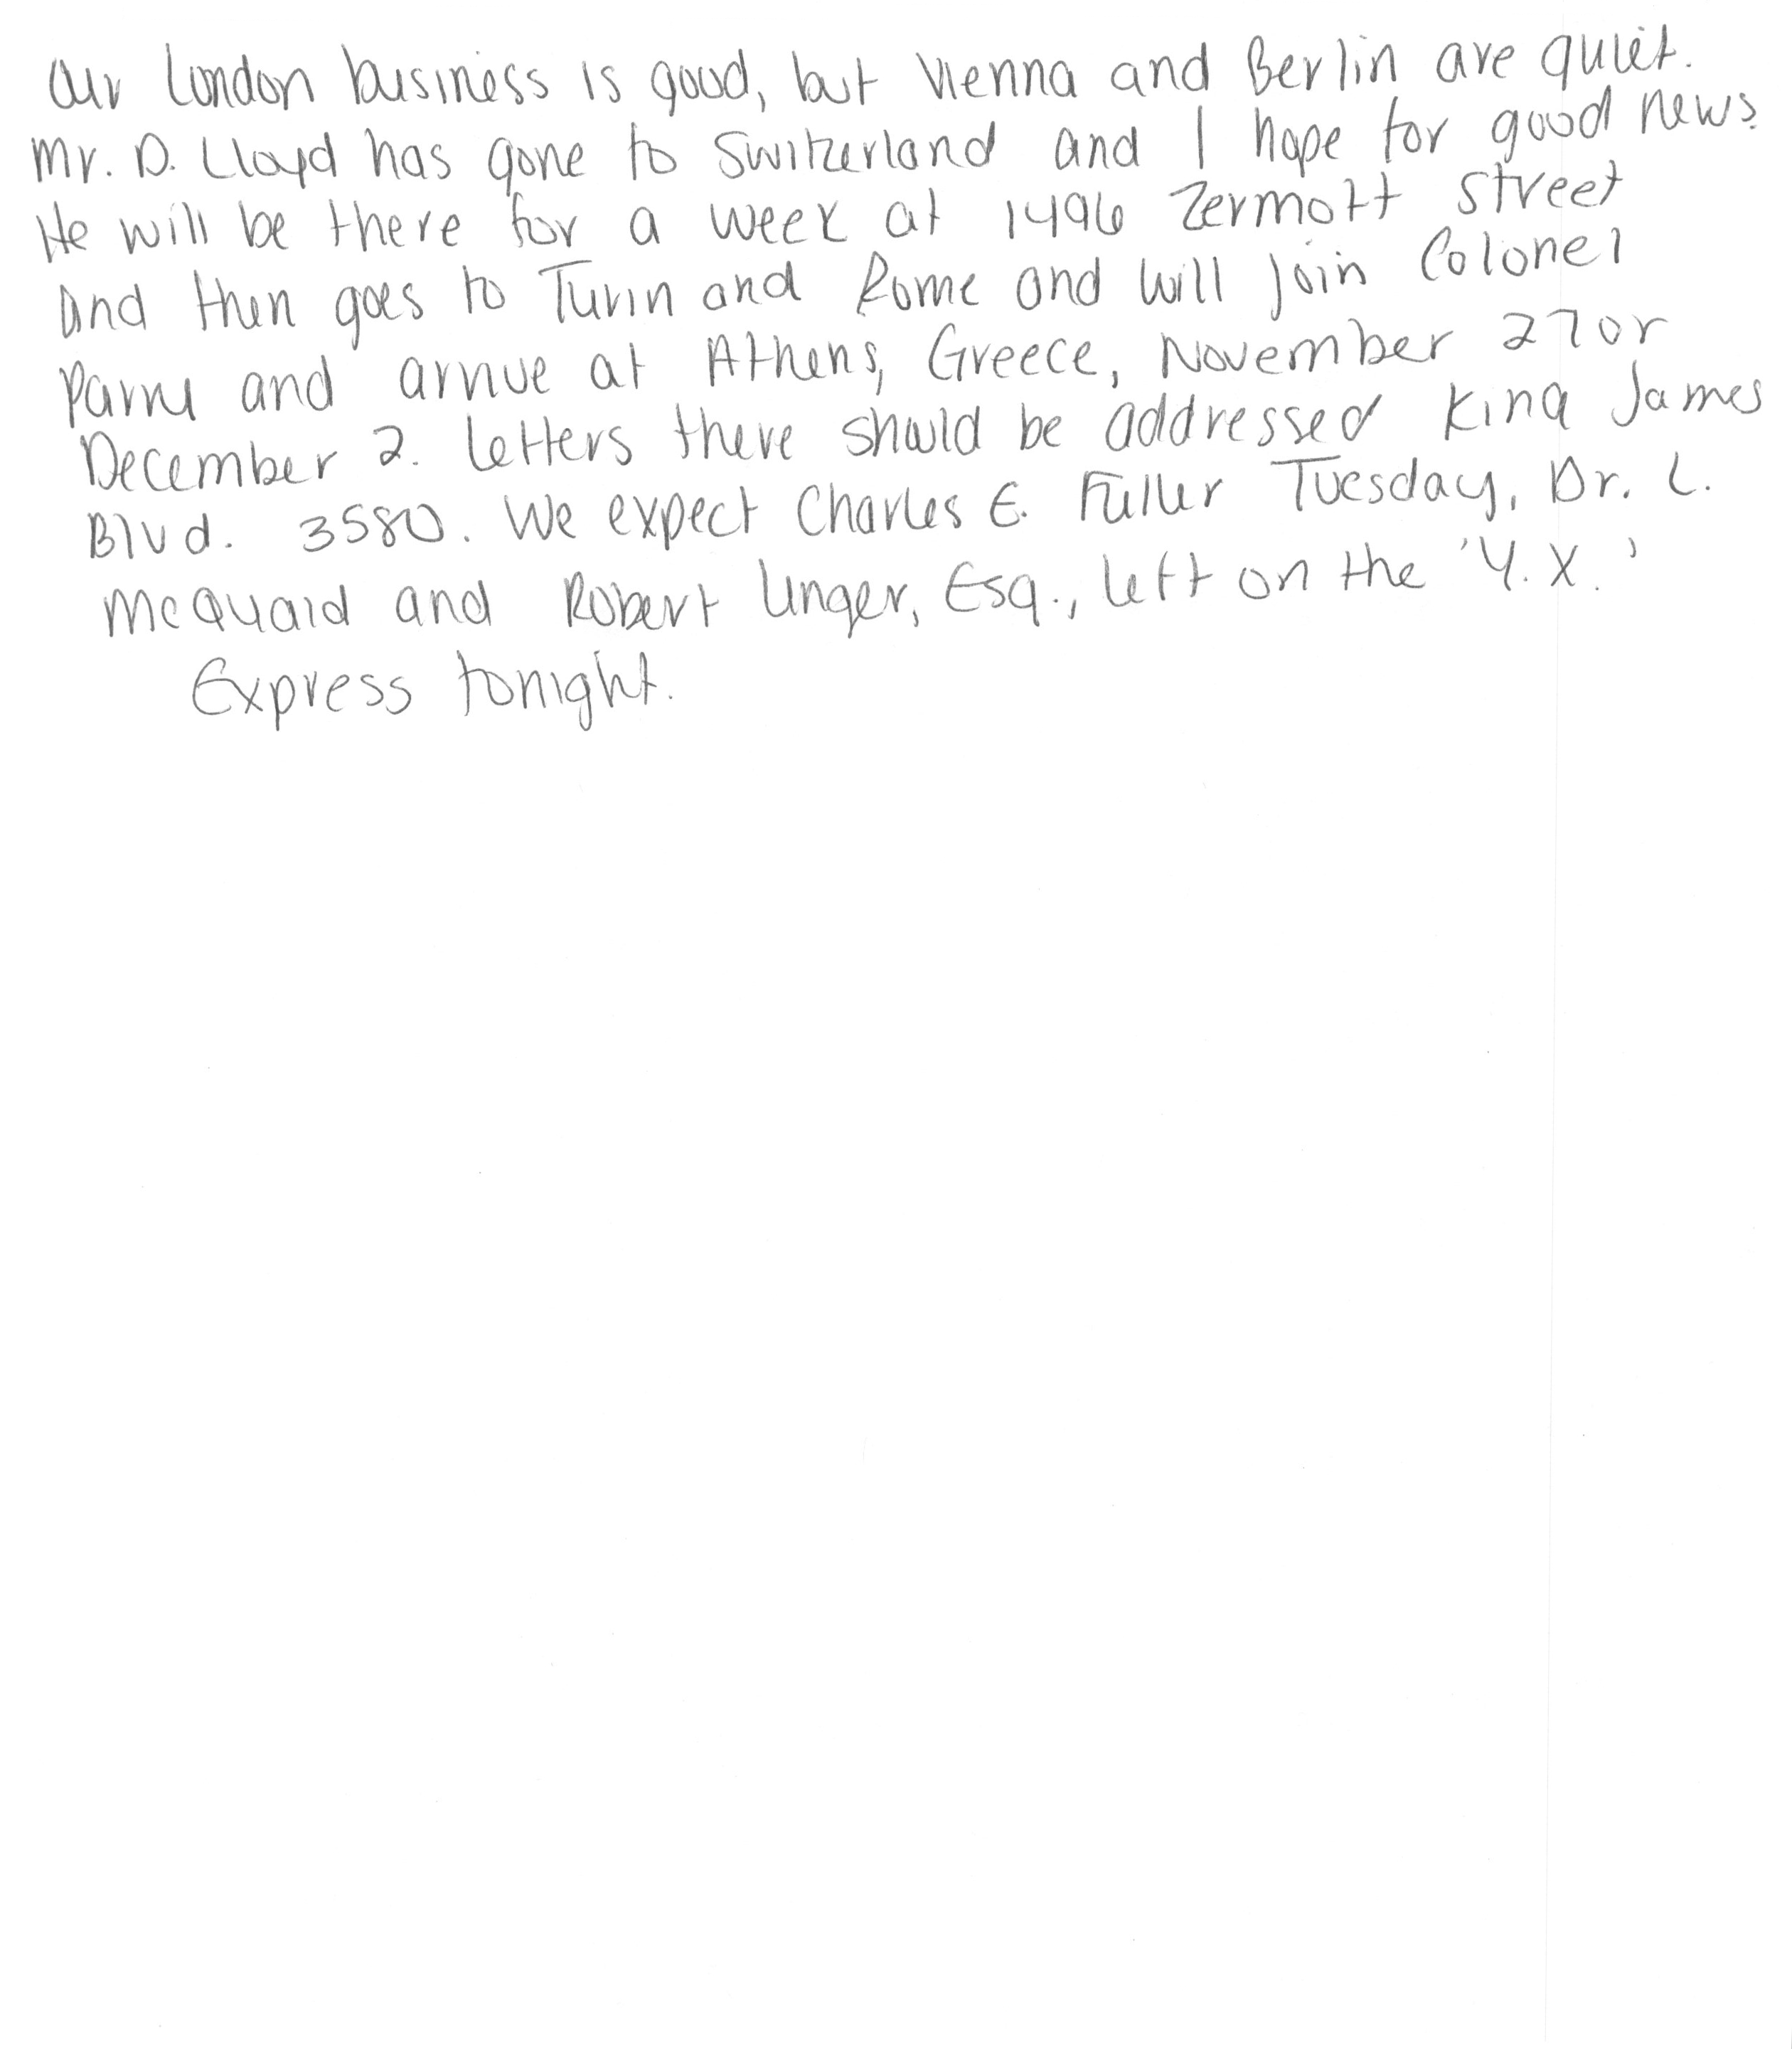 Our London business is good, but Vienna and Berlin are quiet.
Mr. D. Lloyd has gone to Switzerland and I hope for good news.
He will be there for a week at 1496 Zermott street
and then goes to Turin and Rome and will join Colonel
Parry and arrive at Athens, Greece, November 27 or
December 2. Letters there should be addressed King James
Blvd. 3580. We expect Charles E. Fuller Tuesday, Dr. L.
McQuaid and Robert Unger, Esq., left on the 'Y.X.'
Express tonight.